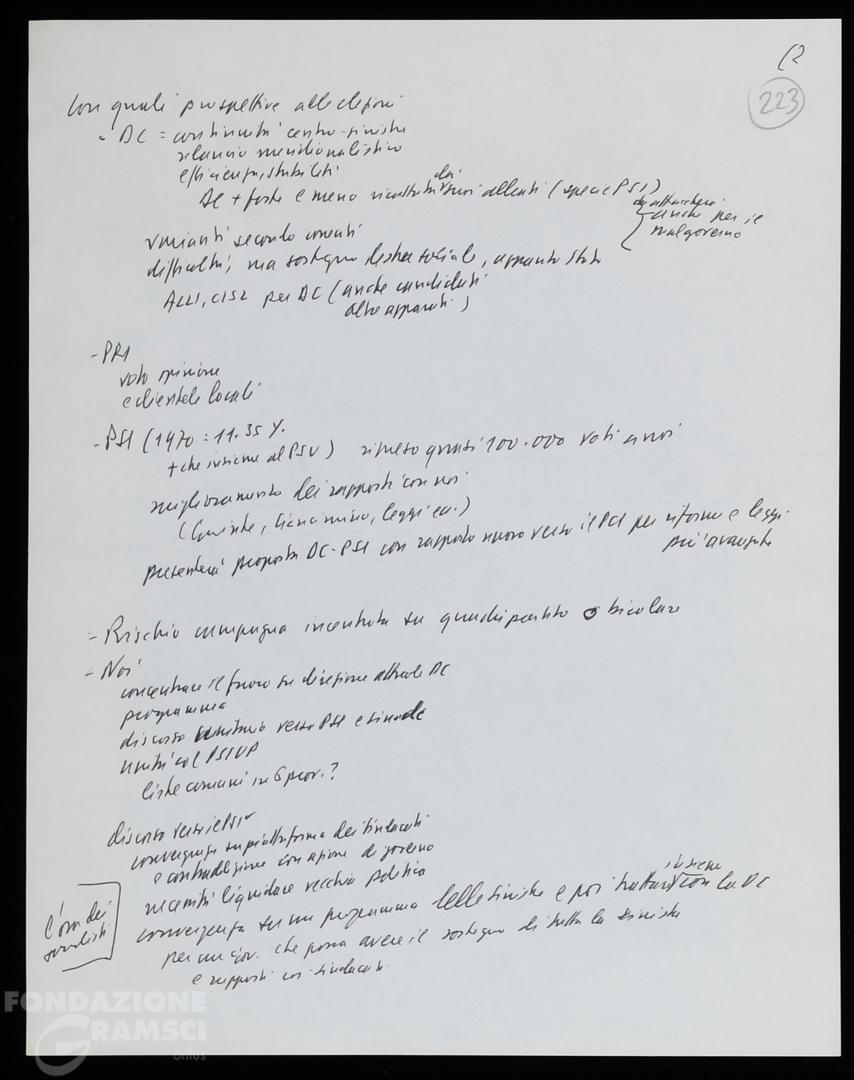 (2
223
Con quali prospettive alle elezioni
- DC = continuità centro-sinistra
rilancio meridionalistico
efficienza, stabilità
DC + forte e meno ricattata dai suoi alleati (specie PSI)
da attaccherà
anche per il
malgoverno
varianti secondo correnti
difficoltà, ma sostegno destra sociale, apparato Stato
ACLI, CISL per DC (anche candidati
altre apparati)
- PRI
voto opinione
e clientele locali
- PSI (1970 = 11.35 %
+ che insieme al PSU) rispetto quasi 100.000 voti a noi
miglioramento dei rapporti con noi
( , Ciancimino, leggi ecc.)
presenterà proposta DC-PSI con rapporto nuovo verso il PCI per riforme e leggi
più avanzate
- Rischio campagna incentrata su quadripartito o bicolore
- Noi
concentrare il fuoco su direzione attuale DC
programma
discorso unitario verso PSI e sin. dc
unità col PSIUP
liste comuni in 6 prov.?
discorso verso il PSI
convergenza su piattaforma dei sindacati
e contraddizione con azione di governo
necessità liquidare vecchio politico
convergenza su un programma delle sinistre e poi trattare insieme con la DC
per un gov. che possa avere il sostegno di tutta la sinistra
e rapporti coi sindacati
L'ora dei
socialisti
FONDAZIONE
GRAMSCI
onlus